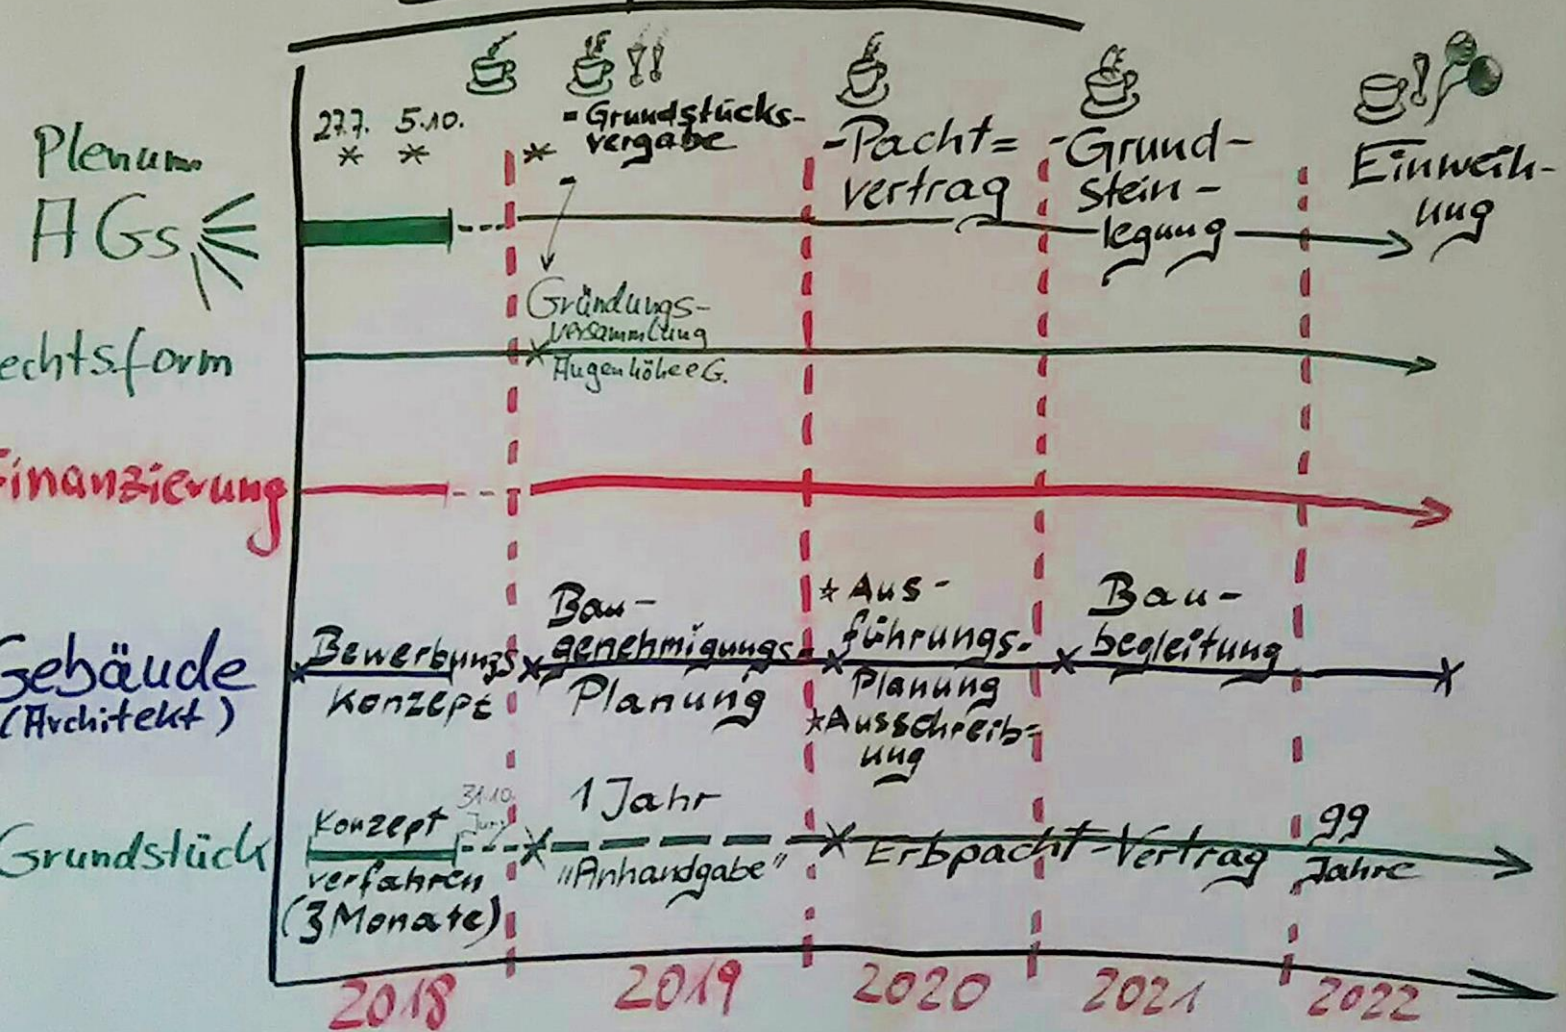 27.7. 5.10.
- Grundstücks-
vergabe
- Pacht=
vertrag
- Grund-
stein-
legung
Einweih-
ung
Plenum
AGs
Gründungs-
versammlung
Augenhöhe e.G.
echtsform
Finanzierung
Gebäude
(Architekt)
Bewerbungs
Konzept
Bau-
genehmigungs-
Planung
* Aus-
führungs-
Planung
* Ausschreib=
ung
Bau-
begleitung
Grundstück
Konzept
verfahren
(3 Monate)
31.10.
1 Jahr
"Anhandgabe"
Erbpacht-Vertrag
99
Jahre
2018 2019 2020 2021 2022